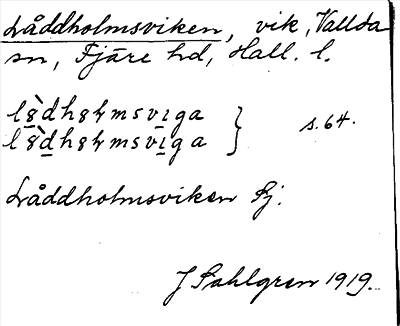 Låddholmsviken, vik, Vallda
sn, Fjäre hd, Hall. l.
l8̀dh8ɬmsviga
l8̀dh8ɬmsviga } s. 64.
Låddholmsviken Gj.
J Sahlgren 1919.